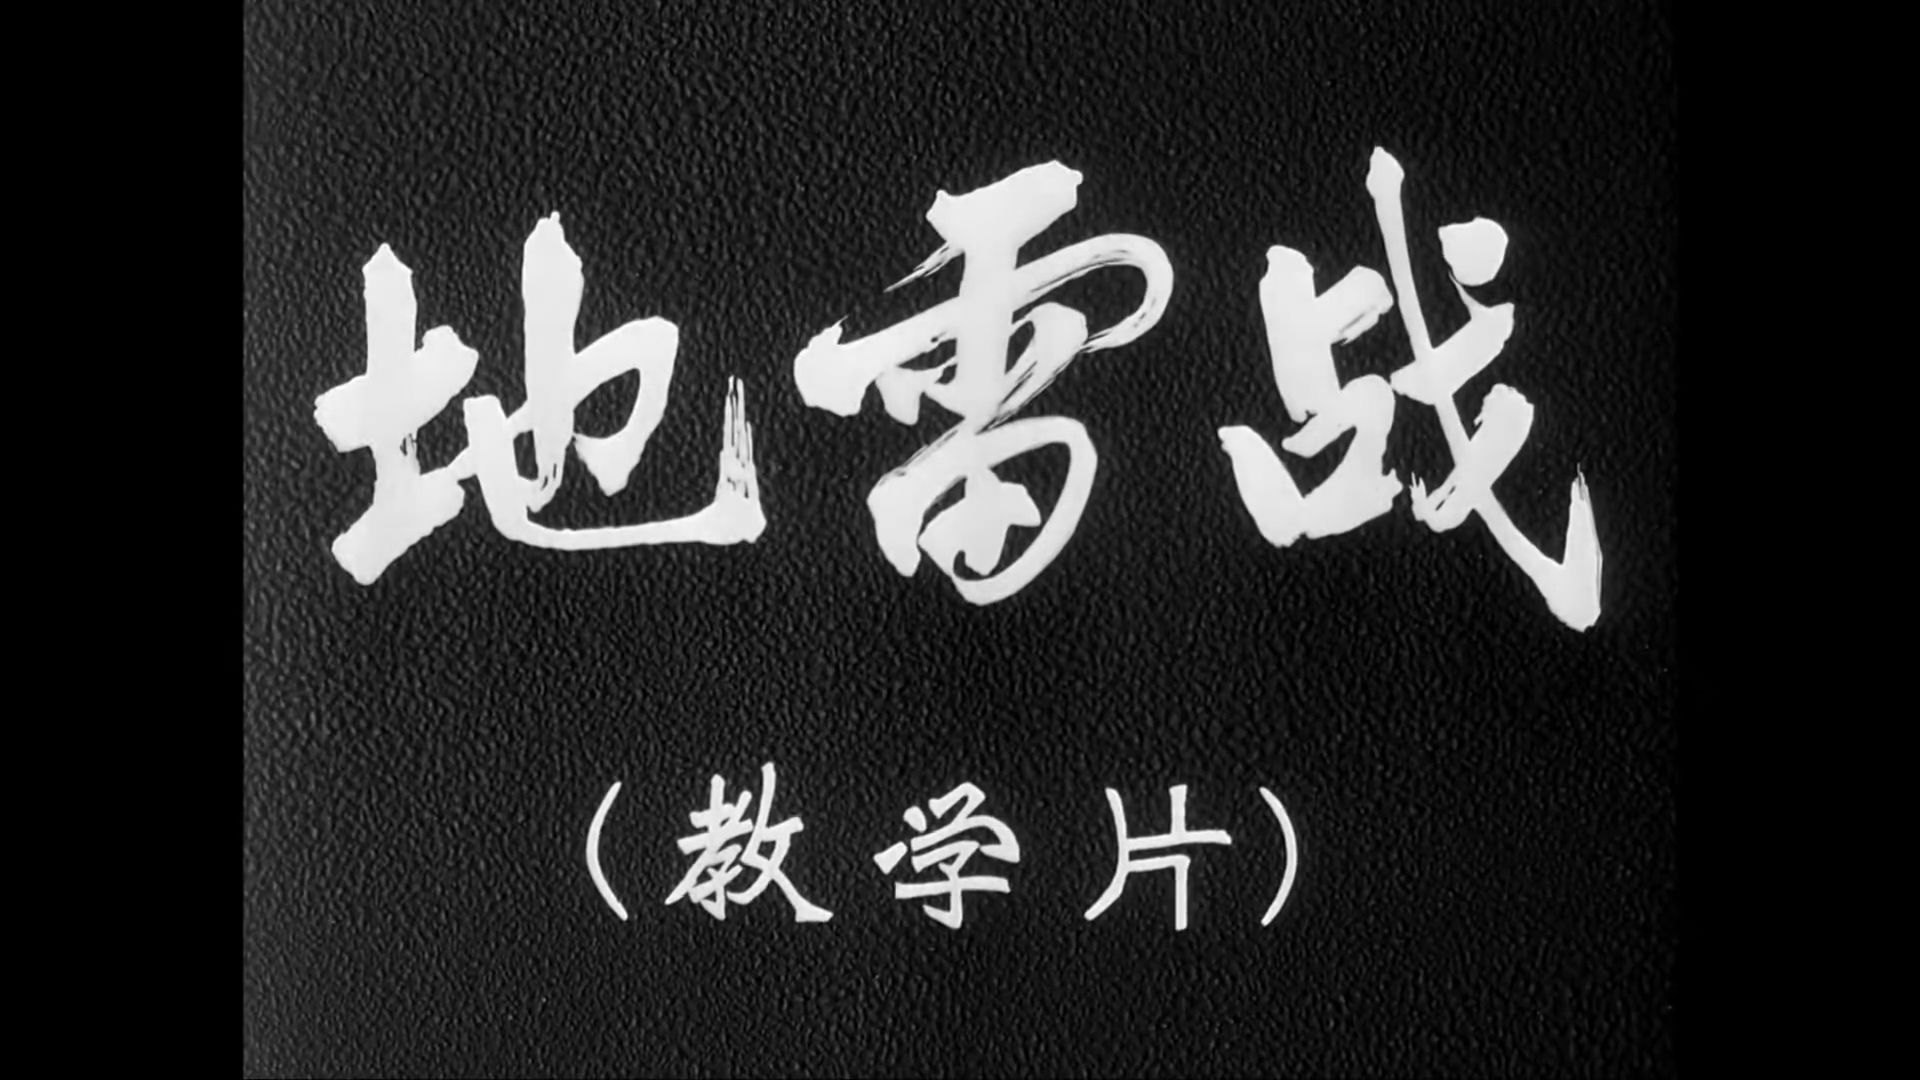 地雷战
（教学片）